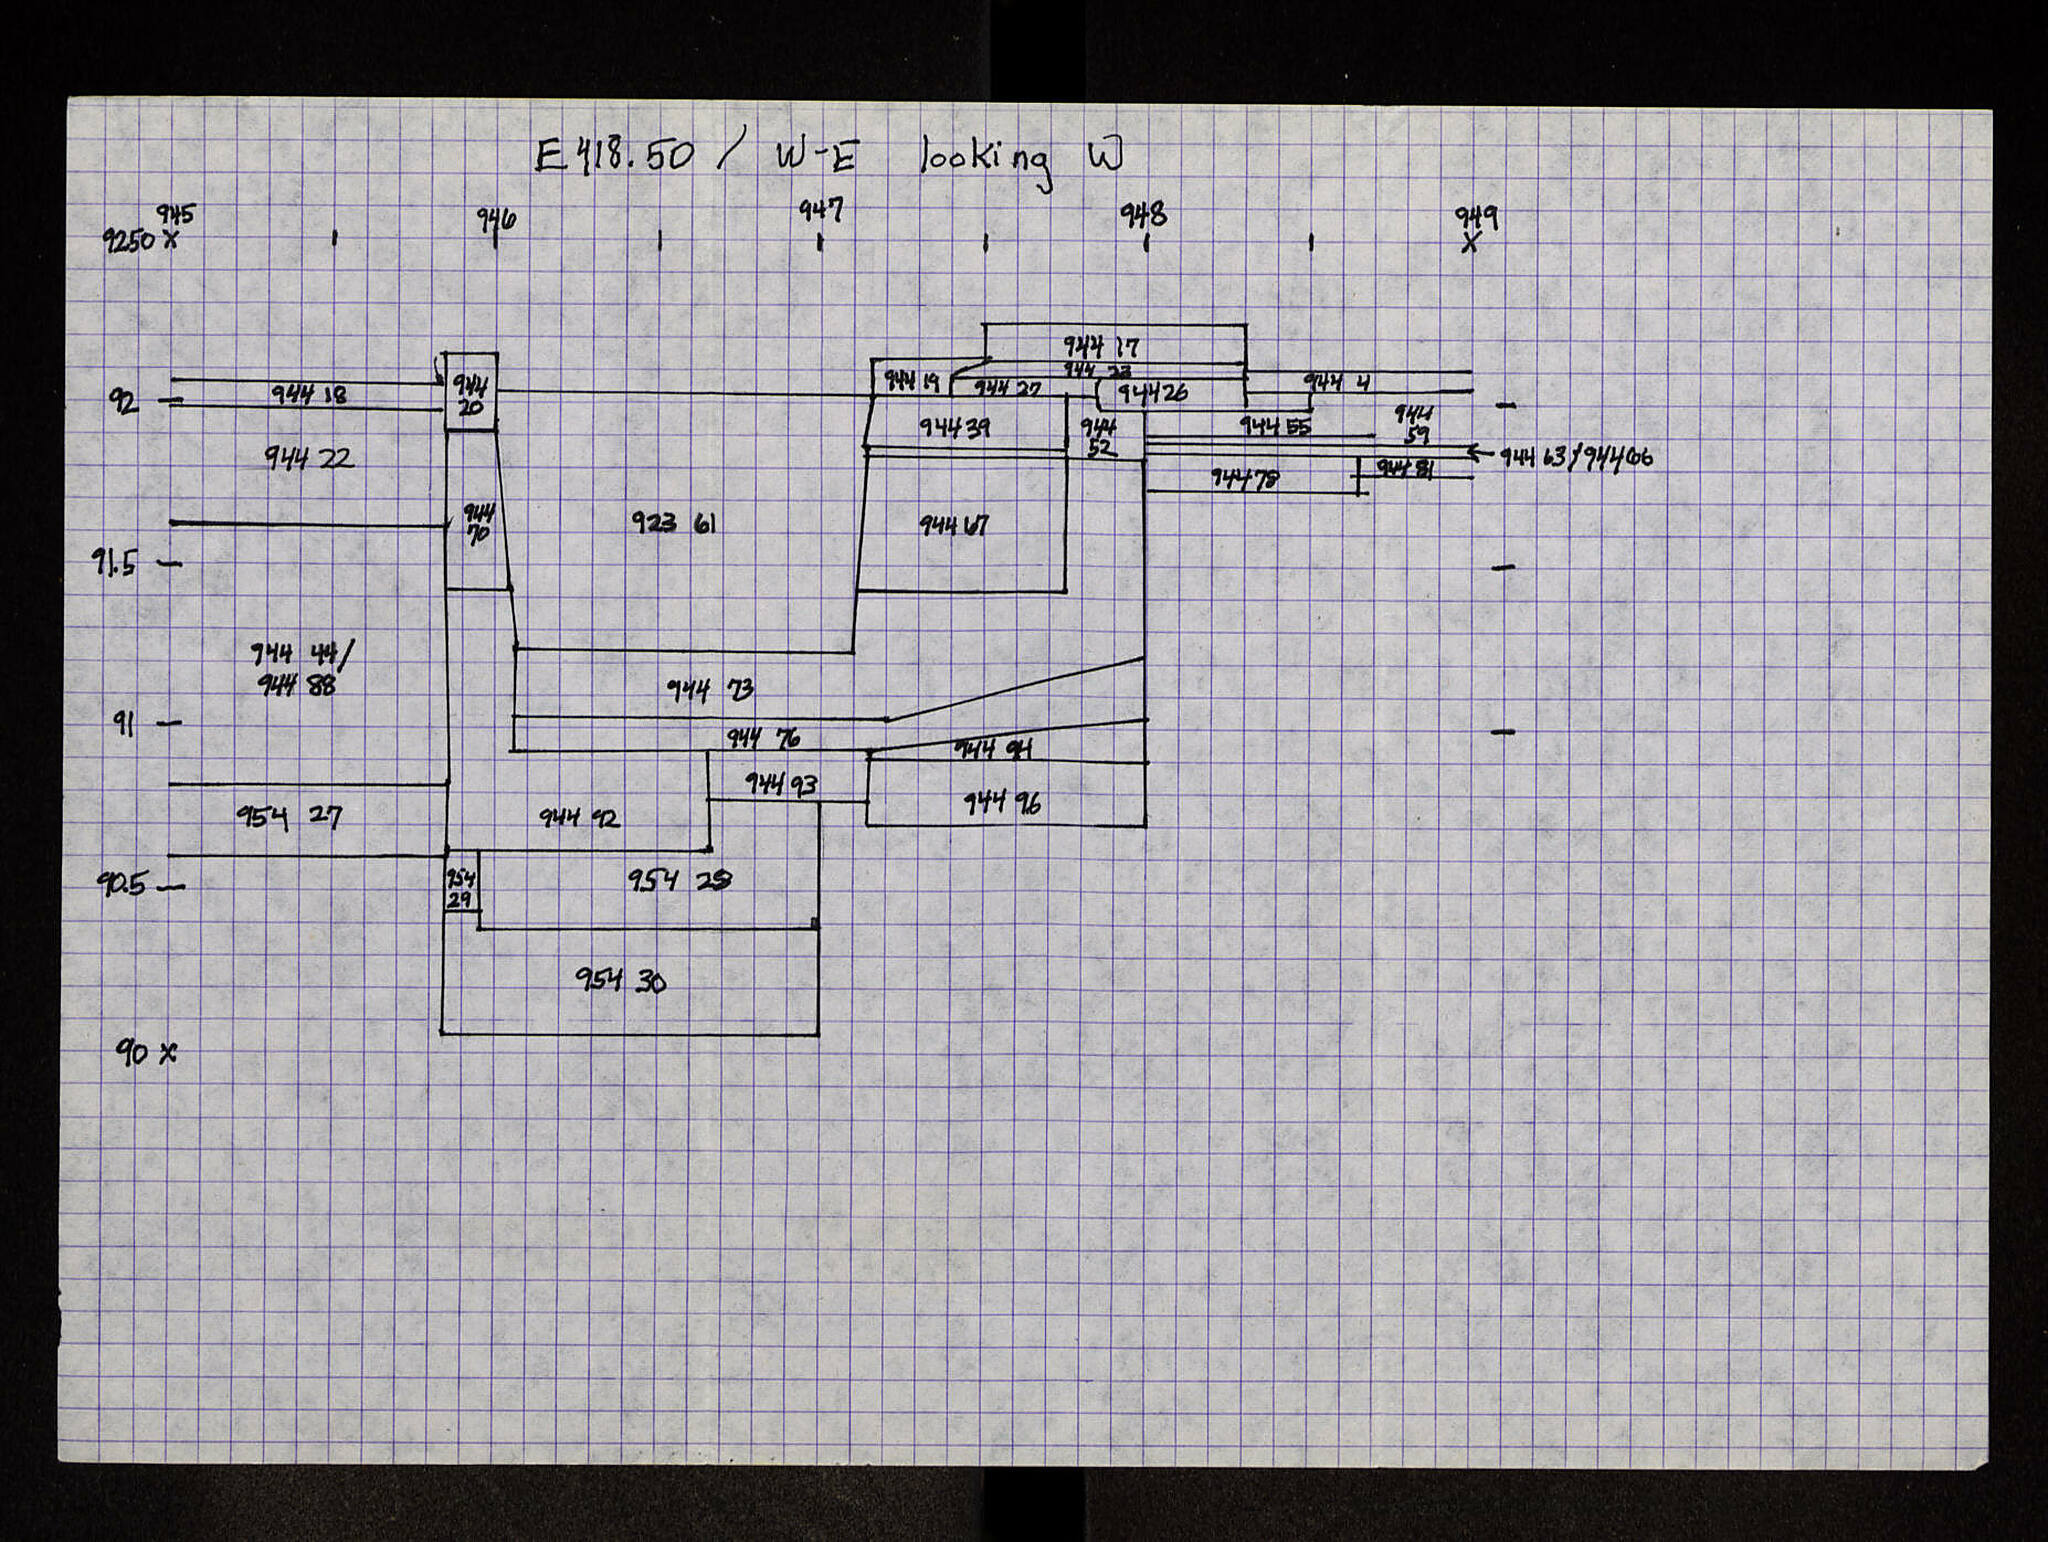 E 418.50 / W-E looking W
945 946 947 948 949
9250 x x
944 17
944 23
944 18 944 20 944 19 944 27 944 26 944 4
92
944 39 944 52 944 55 944 59
944 22 944 63 / 944 66
944 78 944 81
944 70 923 61 944 67
91.5
944 44/
944 88
944 73
91
944 76 944 94
944 93
954 27 944 92 944 96
90.5 954 29 954 28
954 30
90 x